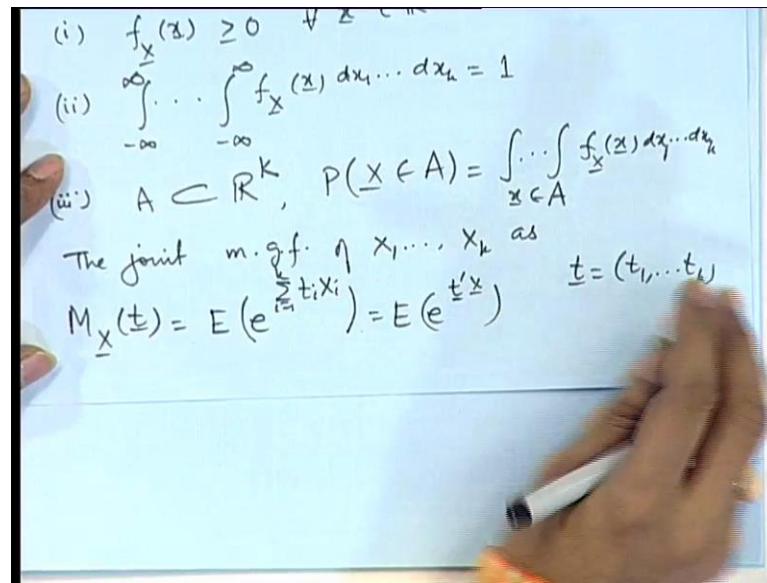 (i) f_X(x) ≥ 0 ∀ x ∈
(ii) ∫_{-∞}^{∞} ... ∫_{-∞}^{∞} f_X(x) dx₁... dx_k = 1
(iii) A ⊂ ℝ^k, P(X ∈ A) = ∫...∫_{x ∈ A} f_X(x) dx₁...dx_k
The joint m.g.f. of X₁..., X_k as
M_X(t) = E(e^{∑_{i=1}^{k} t_i X_i}) = E(e^{t'X}) t = (t₁,...t_k)